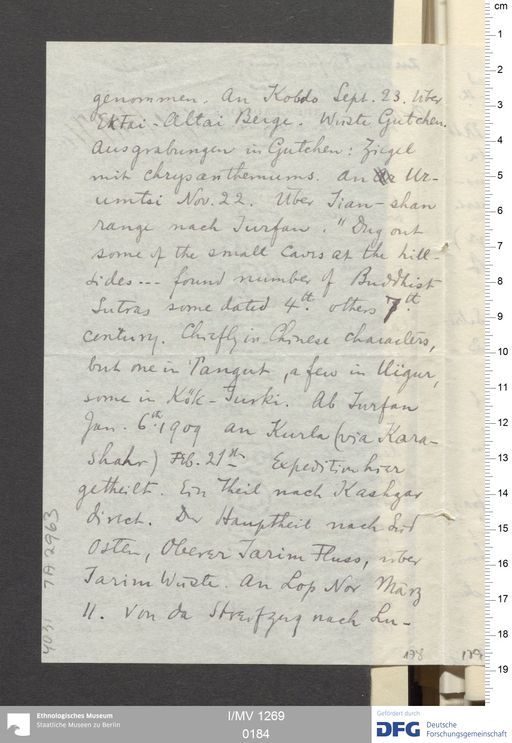 genommen. An Kobdo Sept. 23. Über
Ektai-Altai Berge. Wüste Gutchen.
Ausgrabungen in Gutchen: Ziegel
mit chrysanthemums. An Ur-
umtsi Nov. 22. Über Tian-shan
range nach Turfan. "Dug out
some of the small caves at the hill-
sides --- found number of Buddhist
Sutras some dated 4th. others 7th.
century. Chiefly in Chinese characters,
but one in Tangut, a few in Uigur,
some in Kök-Turki. Ab Turfan
Jan. 6th. 1909 an Kurla (via Kara-
Shahr) Feb. 21st Expedition hier
getheilt. Ein Theil nach Kashgar
direct. Der Haupttheil nach Süd
Osten, Oberer Tarim Fluss, über
Tarim Wüste. An Lop Nor März
11. Von da Streifzug nach Lu-
4031 TA 2963
178
179
cm
1
2
3
4
5
6
7
8
9
10
11
12
13
14
15
16
17
18
19
Ethnologisches Museum
Staatliche Museen zu Berlin
I/MV 1269
0184
Gefördert durch
DFG
Deutsche
Forschungsgemeinschaft